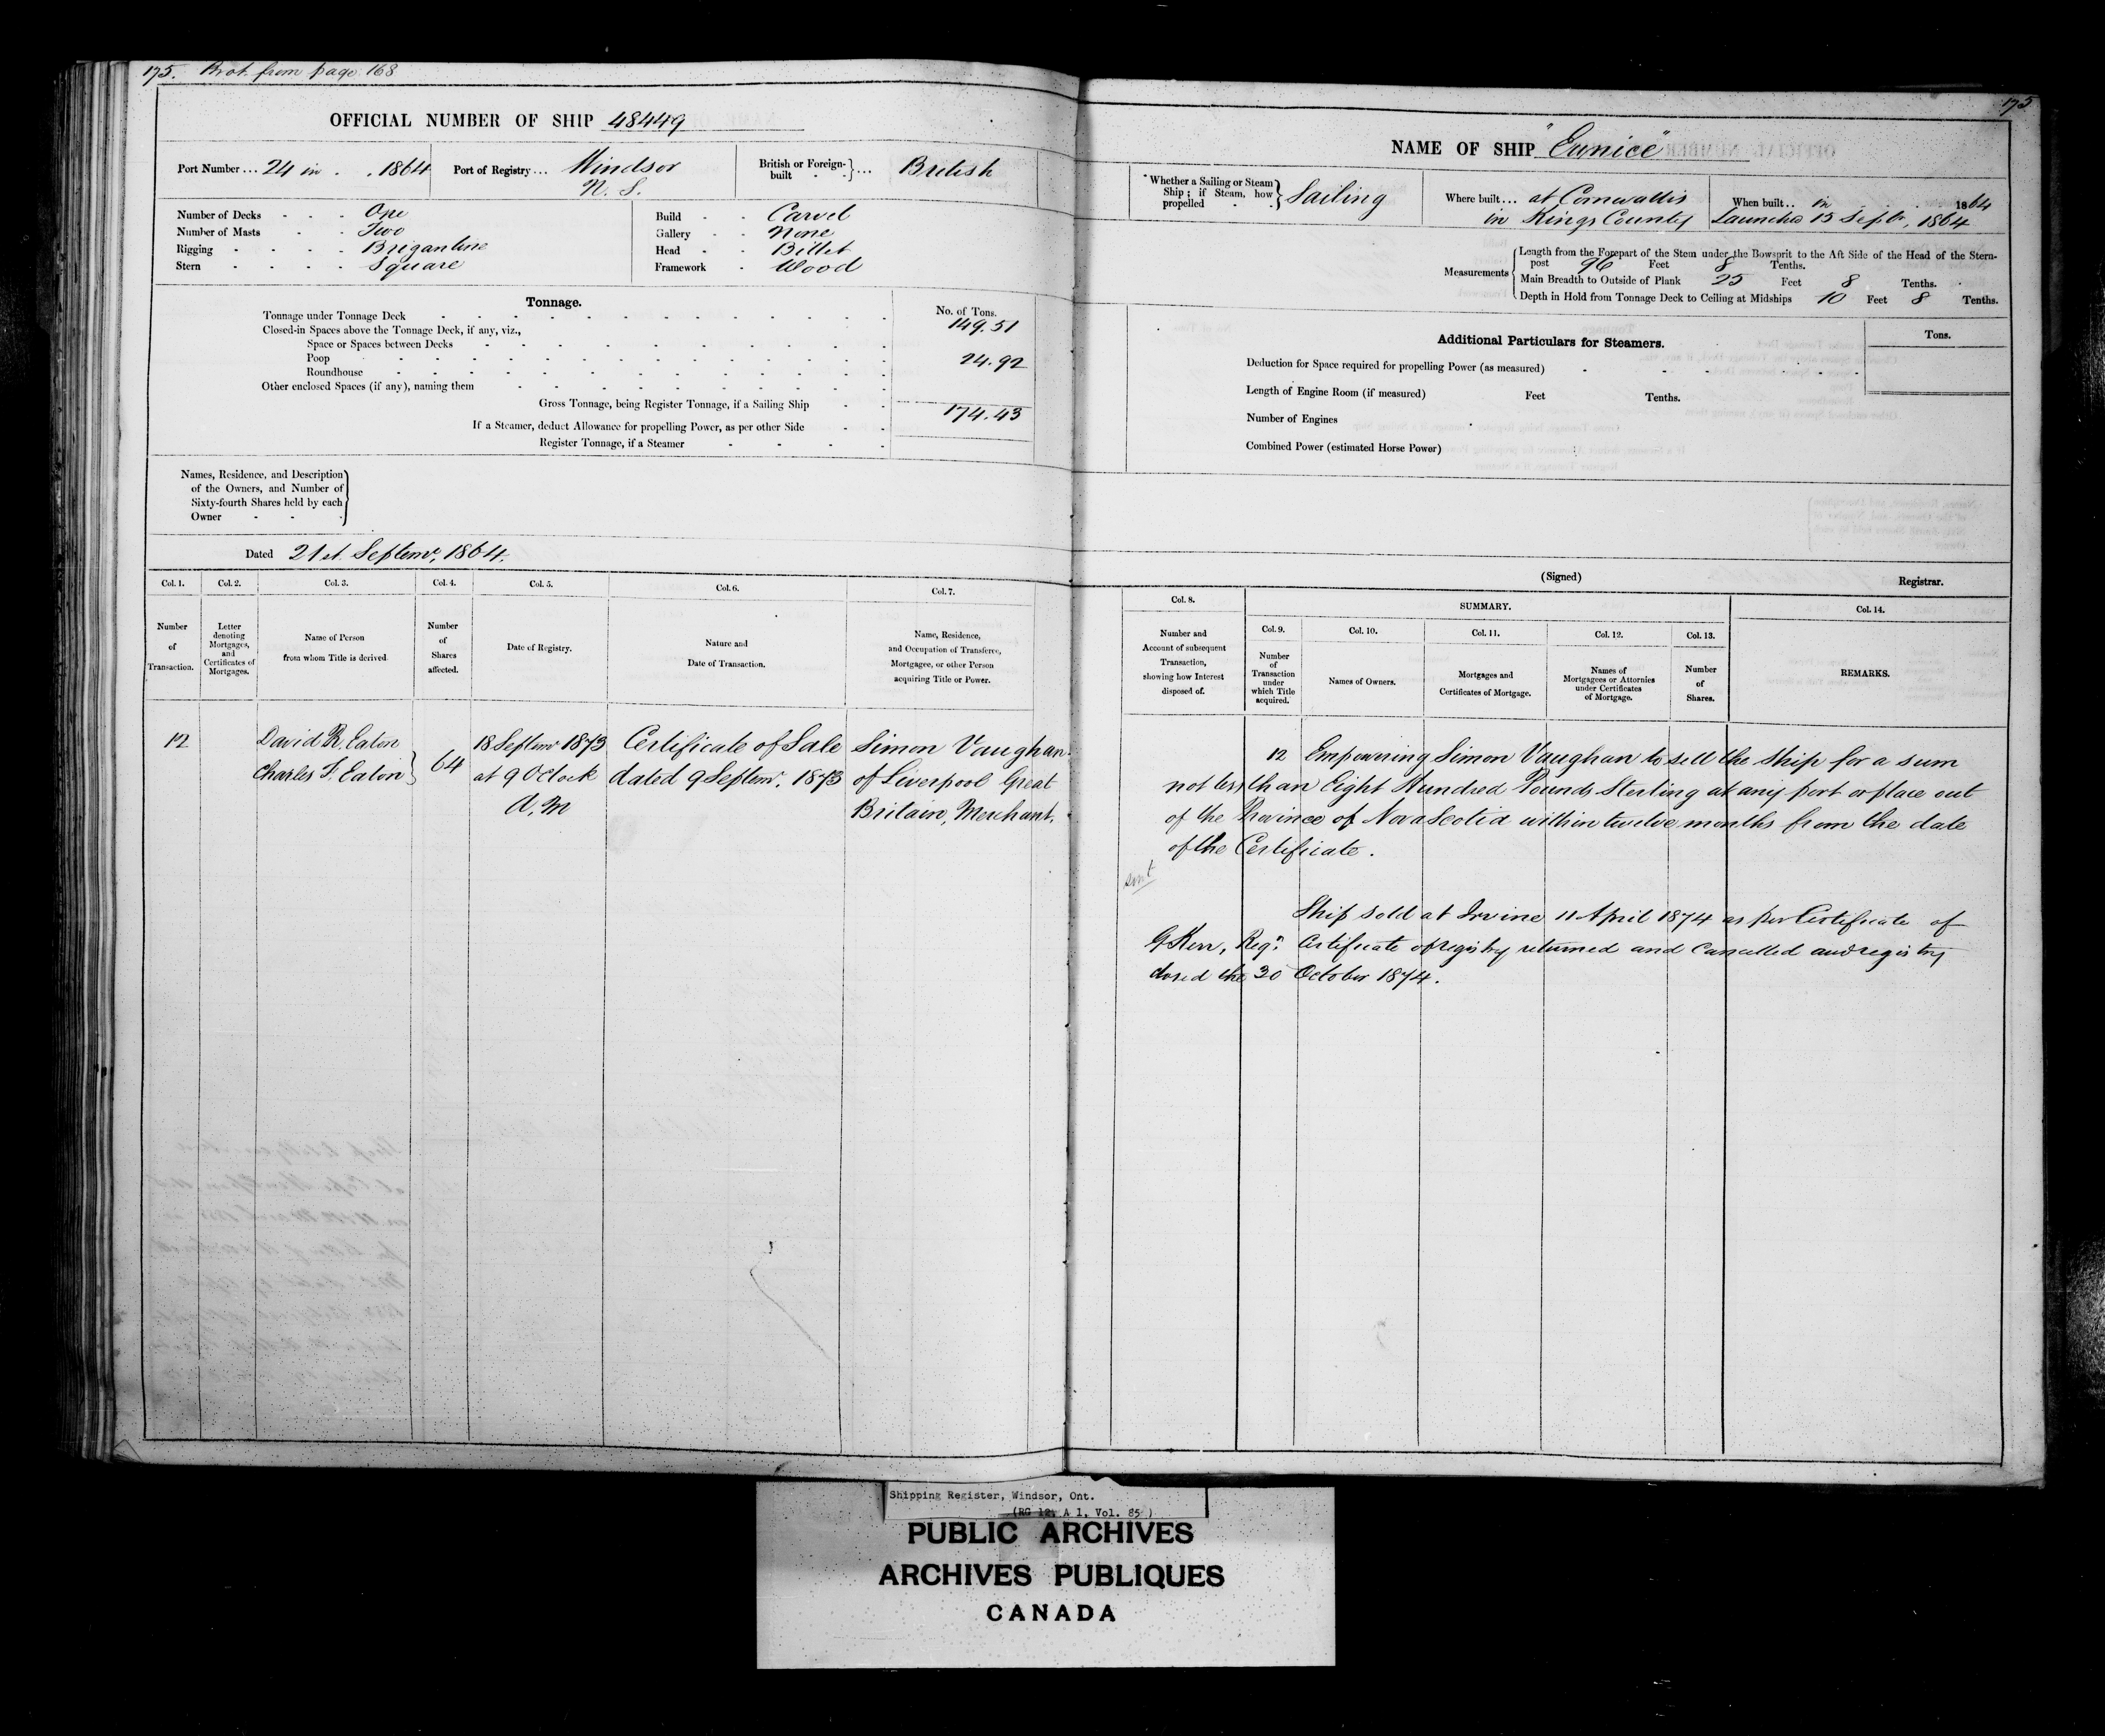 175. Brot. from page 168
OFFICIAL NUMBER OF SHIP 48449
Port Number ... 24 in . . 1864
Port of Registry ... Windsor
N. S.
British or Foreign-built } ... British
Number of Decks - - - One
Number of Masts - - Two
Rigging - - - - Brigantine
Stern - - - - Square
Build - - Carvel
Gallery - - None
Head - - Billet
Framework - Wood
Tonnage.
No. of Tons.
Tonnage under Tonnage Deck 149.51
Closed-in Spaces above the Tonnage Deck, if any, viz.,
Space or Spaces between Decks
Poop 24.92
Roundhouse
Other enclosed Spaces (if any), naming them
Gross Tonnage, being Register Tonnage, if a Sailing Ship 174.43
If a Steamer, deduct Allowance for propelling Power, as per other Side
Register Tonnage, if a Steamer
Names, Residence, and Description
of the Owners, and Number of
Sixty-fourth Shares held by each
Owner - - -
Dated 21st Septemr. 1864.
Col. 1. Col. 2. Col. 3. Col. 4. Col. 5. Col. 6. Col. 7.
Number
of
Transaction.
Letter
denoting
Mortgages,
and
Certificates of
Mortgages.
Name of Person
from whom Title is derived.
Number
of
Shares
affected.
Date of Registry.
Nature and
Date of Transaction.
Name, Residence,
and Occupation of Transferee,
Mortgagee, or other Person
acquiring Title or Power.
12
David R. Eaton
Charles F. Eaton } 64
18 Septemr 1873
at 9 O Clock
A. M
Certificate of Sale
dated 9 Septemr. 1873
Simon Vaughan
of Liverpool Great
Britain, Merchant.
175
NAME OF SHIP "Eunice"
Whether a Sailing or Steam
Ship; if Steam, how
propelled - - } Sailing
Where built ... at Cornwallis
in Kings County
When built .. in . . . 1864
Launched 15 Septr. 1864
Measurements
Length from the Forepart of the Stem under the Bowsprit to the Aft Side of the Head of the Stern-
post 96 Feet 8 Tenths.
Main Breadth to Outside of Plank 25 Feet 8 Tenths.
Depth in Hold from Tonnage Deck to Ceiling at Midships 10 Feet 8 Tenths.
Additional Particulars for Steamers.
Tons.
Deduction for Space required for propelling Power (as measured)
Length of Engine Room (if measured) Feet Tenths.
Number of Engines
Combined Power (estimated Horse Power)
(Signed) Registrar.
Col. 8.
SUMMARY.
Col. 14.
Col. 9. Col. 10. Col. 11. Col. 12. Col. 13.
Number and
Account of subsequent
Transaction,
showing how Interest
disposed of.
Number
of
Transaction
under
which Title
acquired.
Names of Owners.
Mortgages and
Certificates of Mortgage.
Names of
Mortgagees or Attornies
under Certificates
of Mortgage.
Number
of
Shares.
REMARKS.
12 Empowering Simon Vaughan to sell the ship for a sum
not less than Eight Hundred Pounds Sterling at any port or place out
of the Province of Nova Scotia within twelve months from the date
of the Certificate.
sent
Ship sold at Irvine 11 April 1874 as per Certificate of
G Kerr, Regr. Certificate of registry returned and cancelled and registry
closed the 30 October 1874.
Shipping Register, Windsor, Ont.
(RG 12, A 1, Vol. 85 )
PUBLIC ARCHIVES
ARCHIVES PUBLIQUES
CANADA